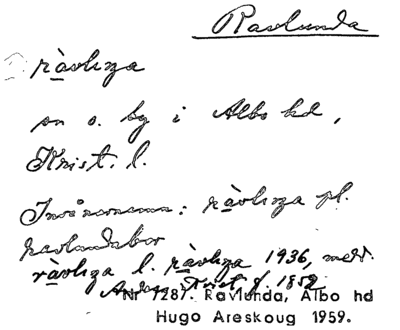 Ravlunda
ràvlıza
sn o. by i Albo hd,
Krist. l.
Invånarnamn: ràvlıza pl.
ravlundabor
ràvlıza l. ràvlıza 1936, medd.
Anders f. 1852
Nr 7287. Ravlunda, Albo hd
Hugo Areskoug 1959.